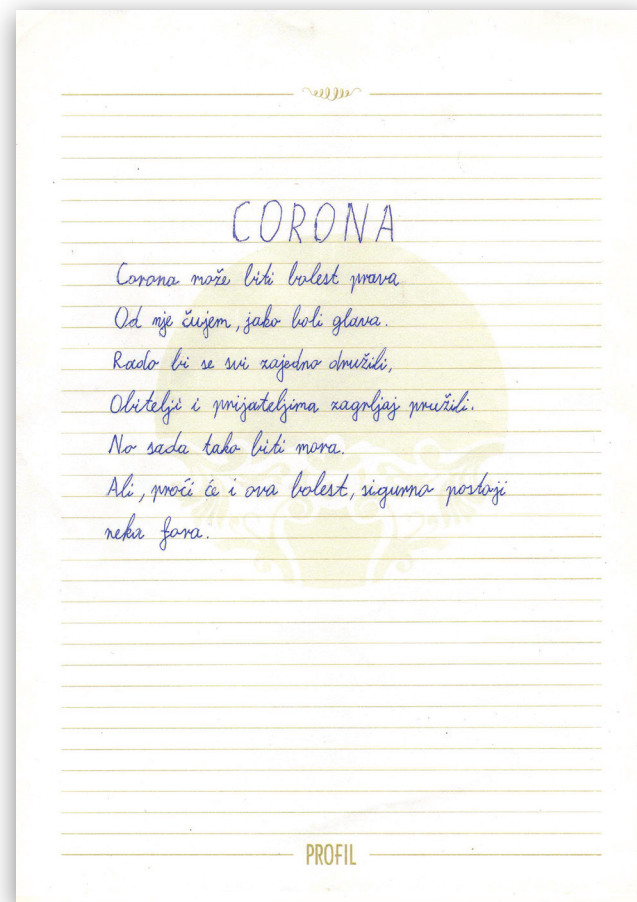 CORONA
Corona može biti bolest prava
Od nje čujem, jako boli glava.
Rado bi se svi zajedno družili,
Obitelji i prijateljima zagrljaj pružili.
No sada tako biti mora.
Ali, proći će i ova bolest, sigurno postoji
neka fora.
PROFIL